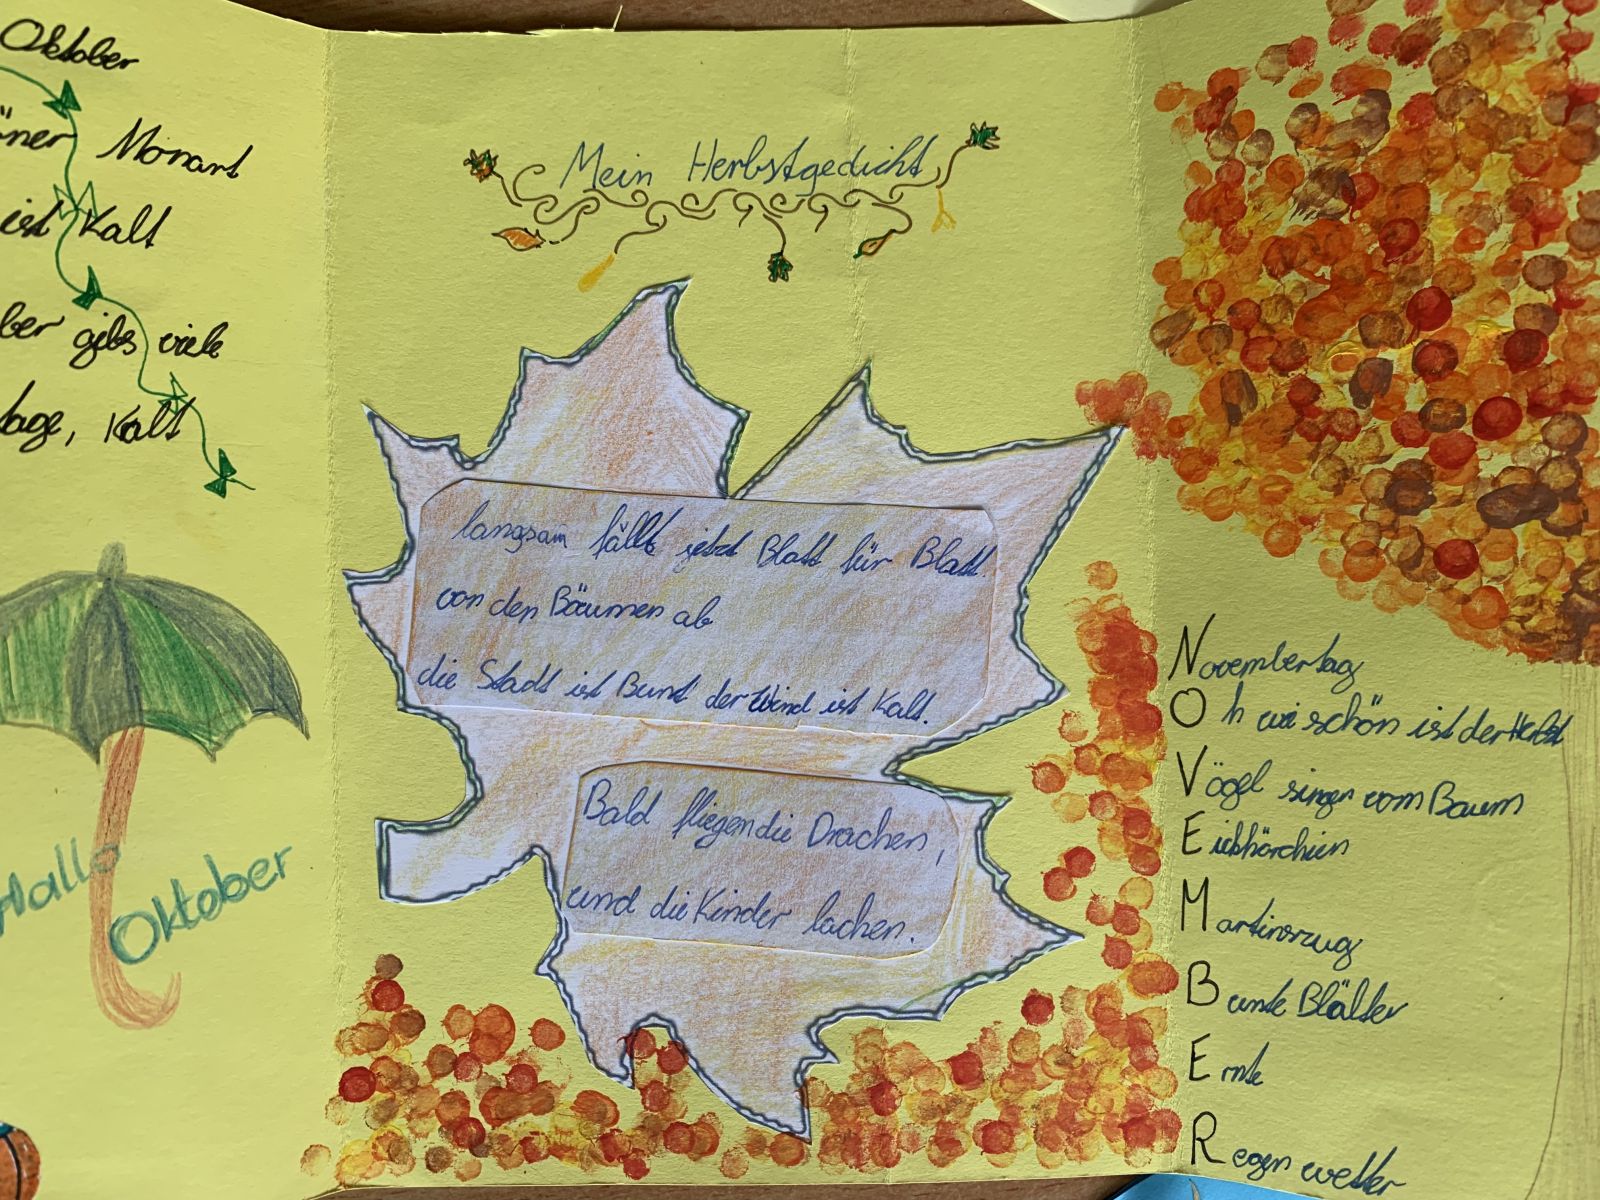 Oktober
öner Monart
ist Kalt
ber gibs viele
tage, Kalt
Hallo
Oktober
Mein Herbstgedicht
langsam fällt jetzt Blatt für Blatt.
von den Bäumen ab
die Stadt ist Bunt der Wind ist Kalt.
Bald fliegen die Drachen,
und die Kinder lachen.
Novembertag
Oh wi schön ist der Herbst
Vögel singen vom Baum
Martinszug
Bunte Blätter
Ernte
Regen wetter